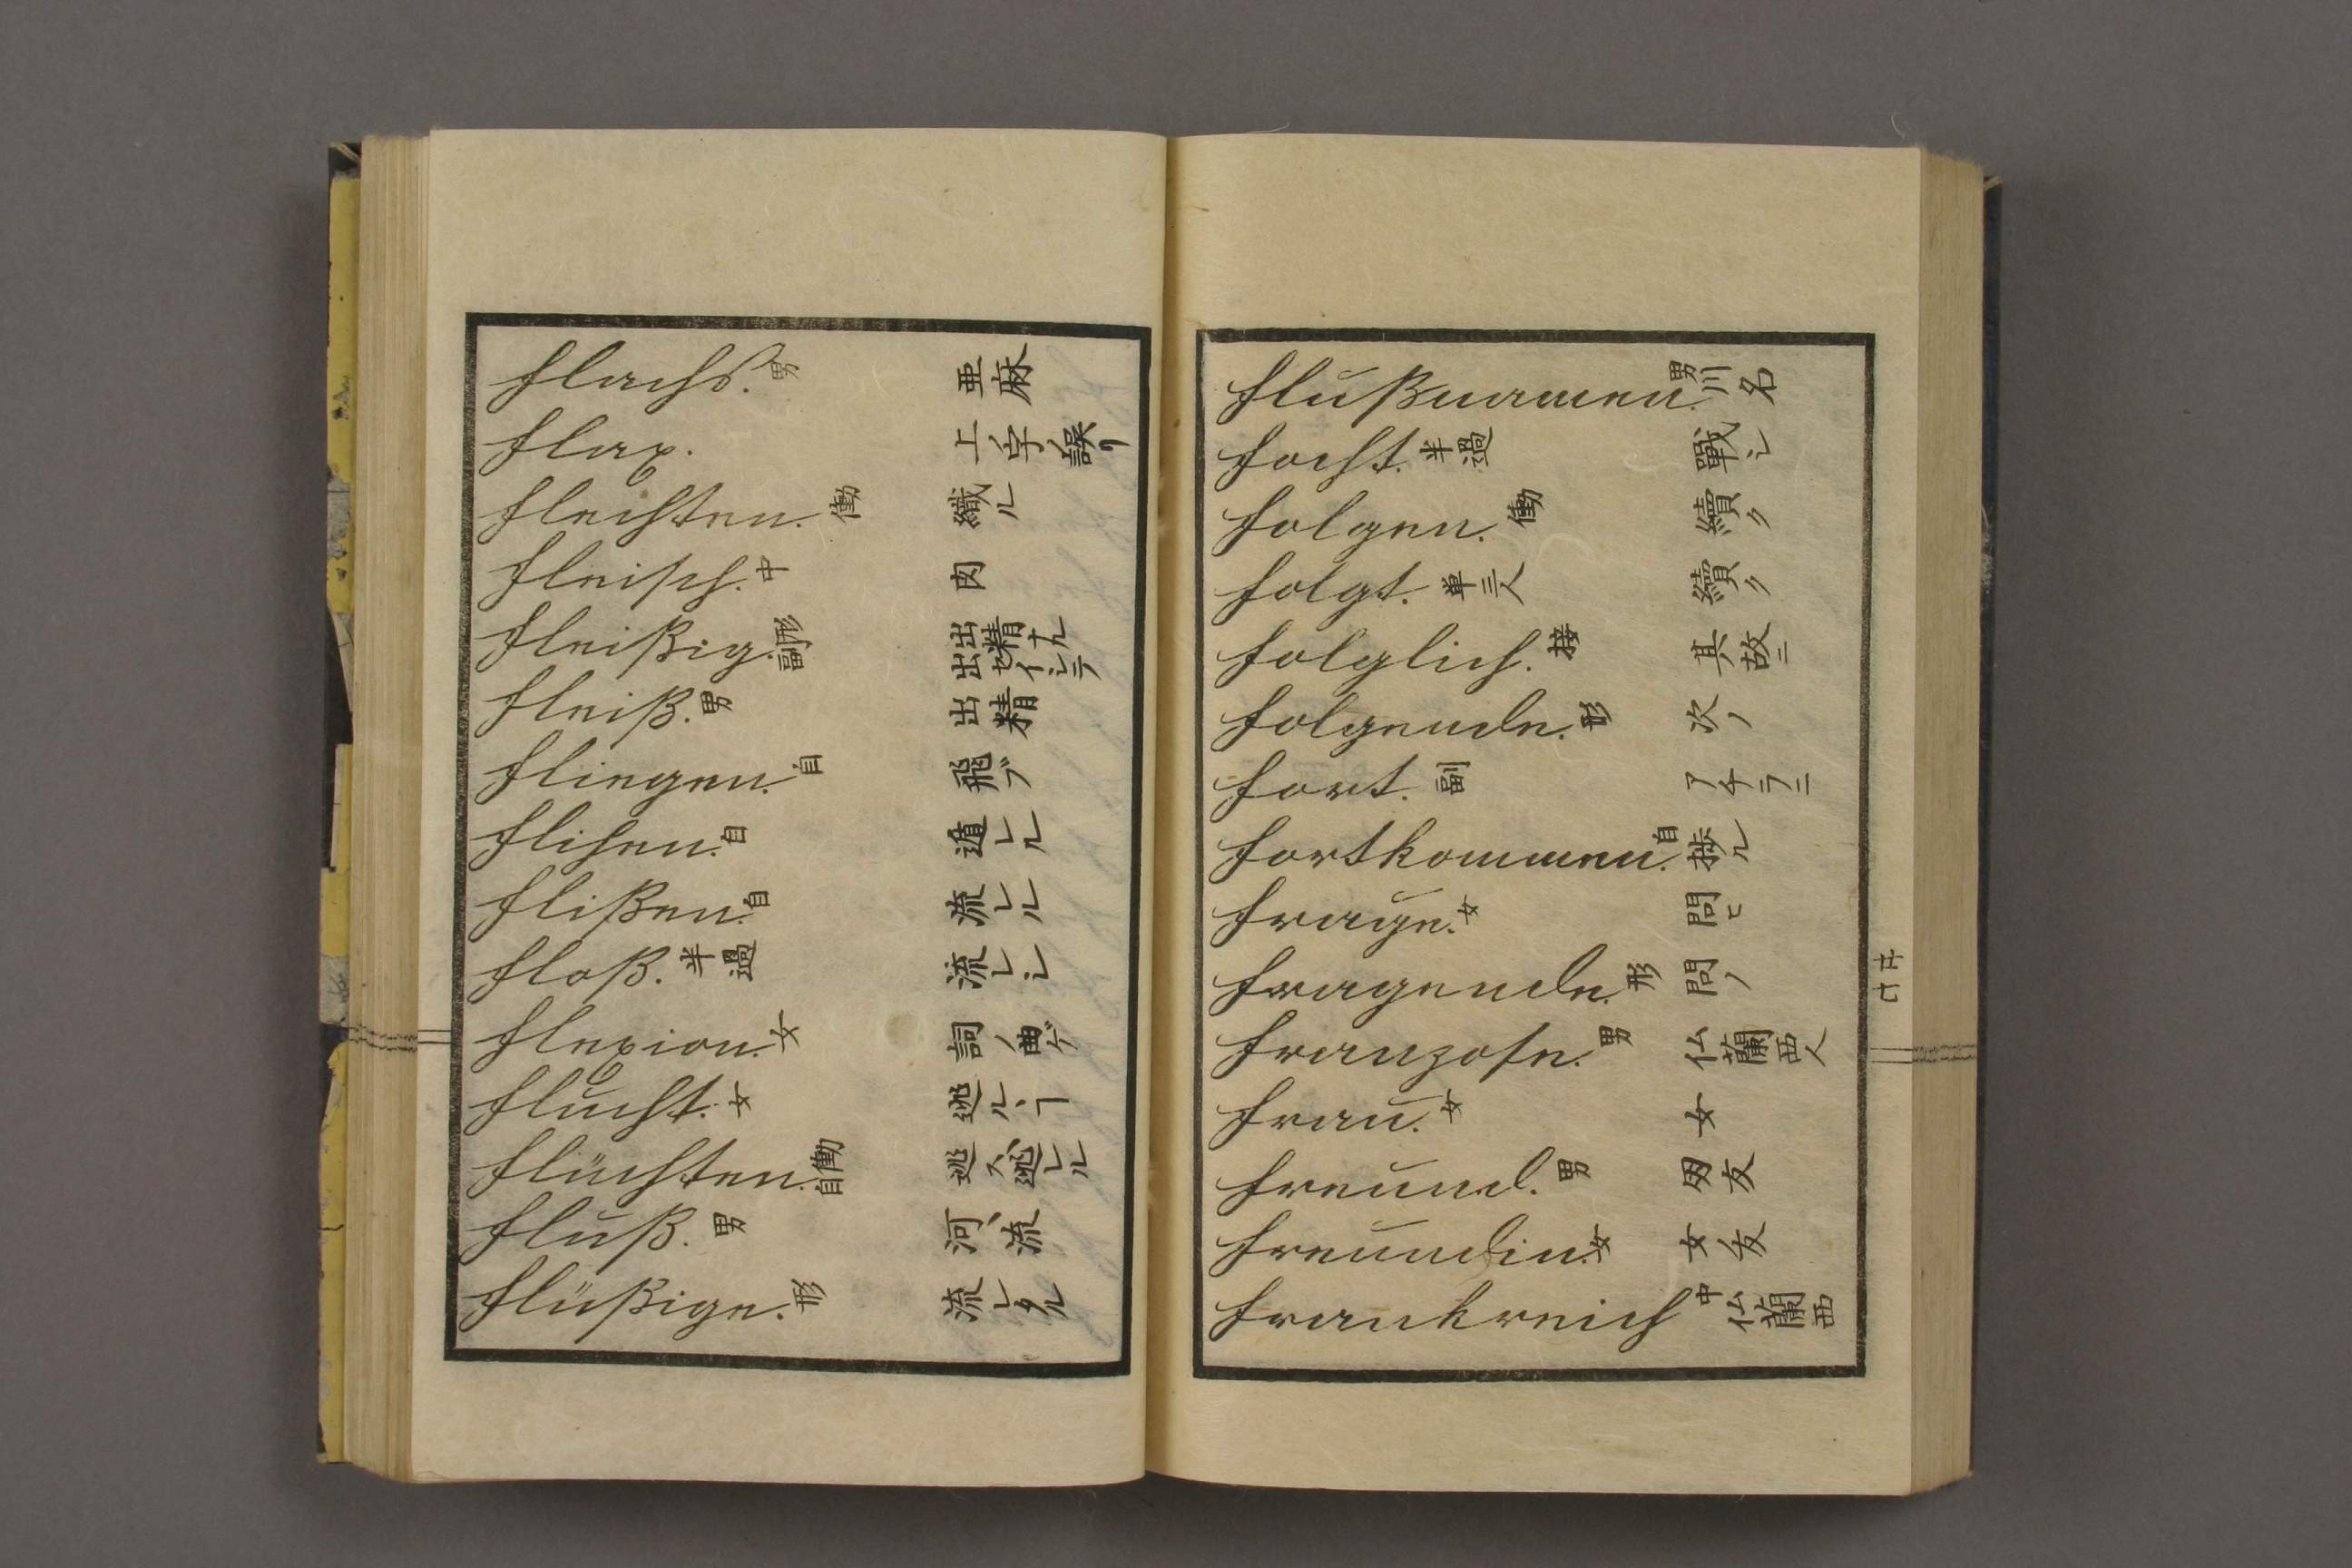 flachs. 男 亜麻
flax. 上字誤リ
flechten. 働 織ル
fleisch. 中 肉
fleißig. 形副 出精ナル出セイシテ
fleiß. 男 出精
fliegen. 自 飛ブ
flihen. 自 遁レル
flißen. 自 流レル
floß. 半過 流レシ
flexion. 女 詞ノ曲ゲ
flucht. 女 逃ルヽヿ
flüchten. 働自 逃ス、逃レル
fluß. 男 河、流
flüßige. 形 流レタル
flußnamen. 男 川名
focht. 半過 戰シ
folgen. 働 續ク
folgt. 単三人 續ク
folglich. 接 其故ニ
folgende. 形 次ノ
fort. 副 アチラニ
fortkommen. 自 捗ル
frage. 女 問ヒ
fragende. 形 問ノ
franzose. 男 仏蘭西人
frau. 女 女
freund. 男 男友
freundin. 女 女友
frankreich 中 仏蘭西